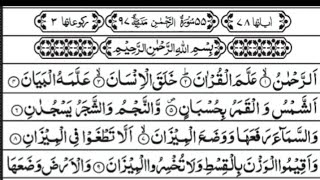 اٰیاتها ٧٨ ٥٥ سُوْرَةُ الرَّحْمٰنِ مَدَنِيَّةٌ ٩٧ رکوعاتها ٣
بِسْمِ اللّٰهِ الرَّحْمٰنِ الرَّحِیْمِ
اَلرَّحْمٰنُ ۙ عَلَّمَ الْقُرْاٰنَ ؕ خَلَقَ الْاِنْسَانَ ۙ عَلَّمَهُ الْبَیَانَ
اَلشَّمْسُ وَ الْقَمَرُ بِحُسْبَانٍ ۪ وَّ النَّجْمُ وَ الشَّجَرُ یَسْجُدٰنِ
وَ السَّمَآءَ رَفَعَهَا وَ وَضَعَ الْمِیْزَانَ ۙ اَلَّا تَطْغَوْا فِی الْمِیْزَانِ
وَ اَقِیْمُوا الْوَزْنَ بِالْقِسْطِ وَ لَا تُخْسِرُوا الْمِیْزَانَ وَ الْاَرْضَ وَضَعَهَا